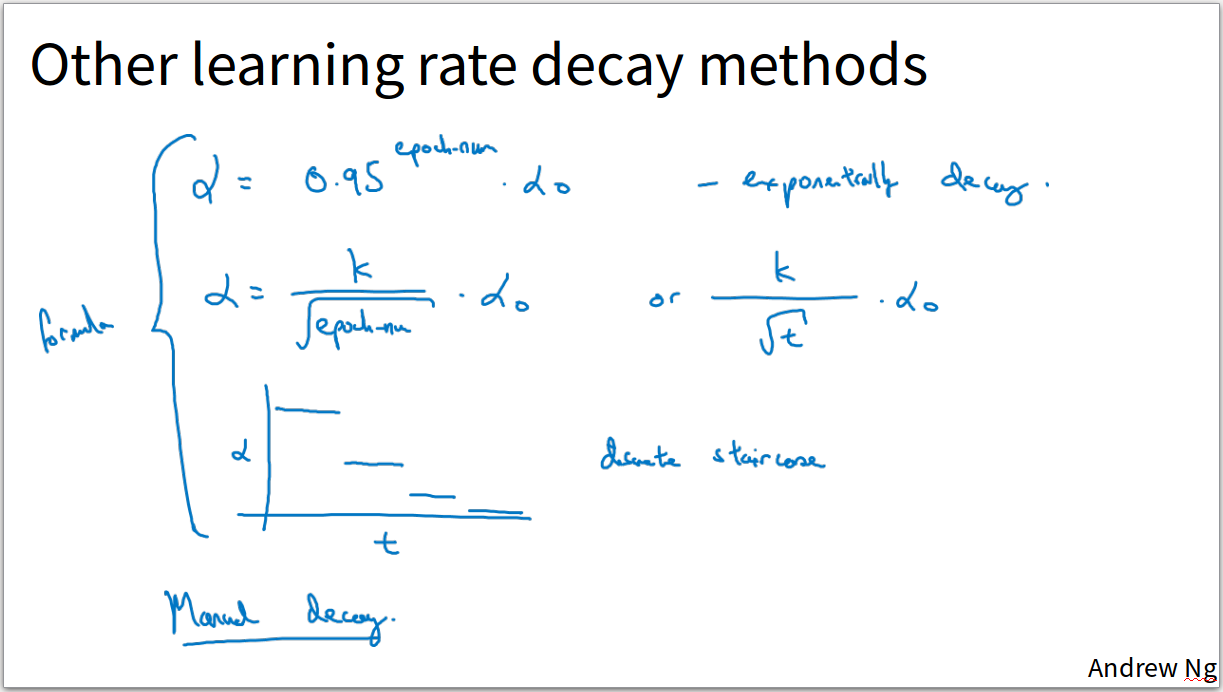 Other learning rate decay methods
α = 0.95^epoch-num · α₀ – exponentially decay.
formula
α = k / √epoch-num · α₀ or k / √t · α₀
α
discrete staircase
t
Manual decay.
Andrew Ng